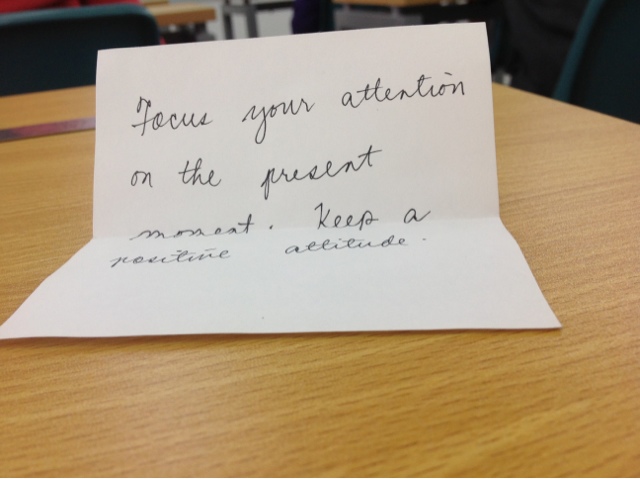 Focus your attention
on the present
moment. Keep a
positive attitude.